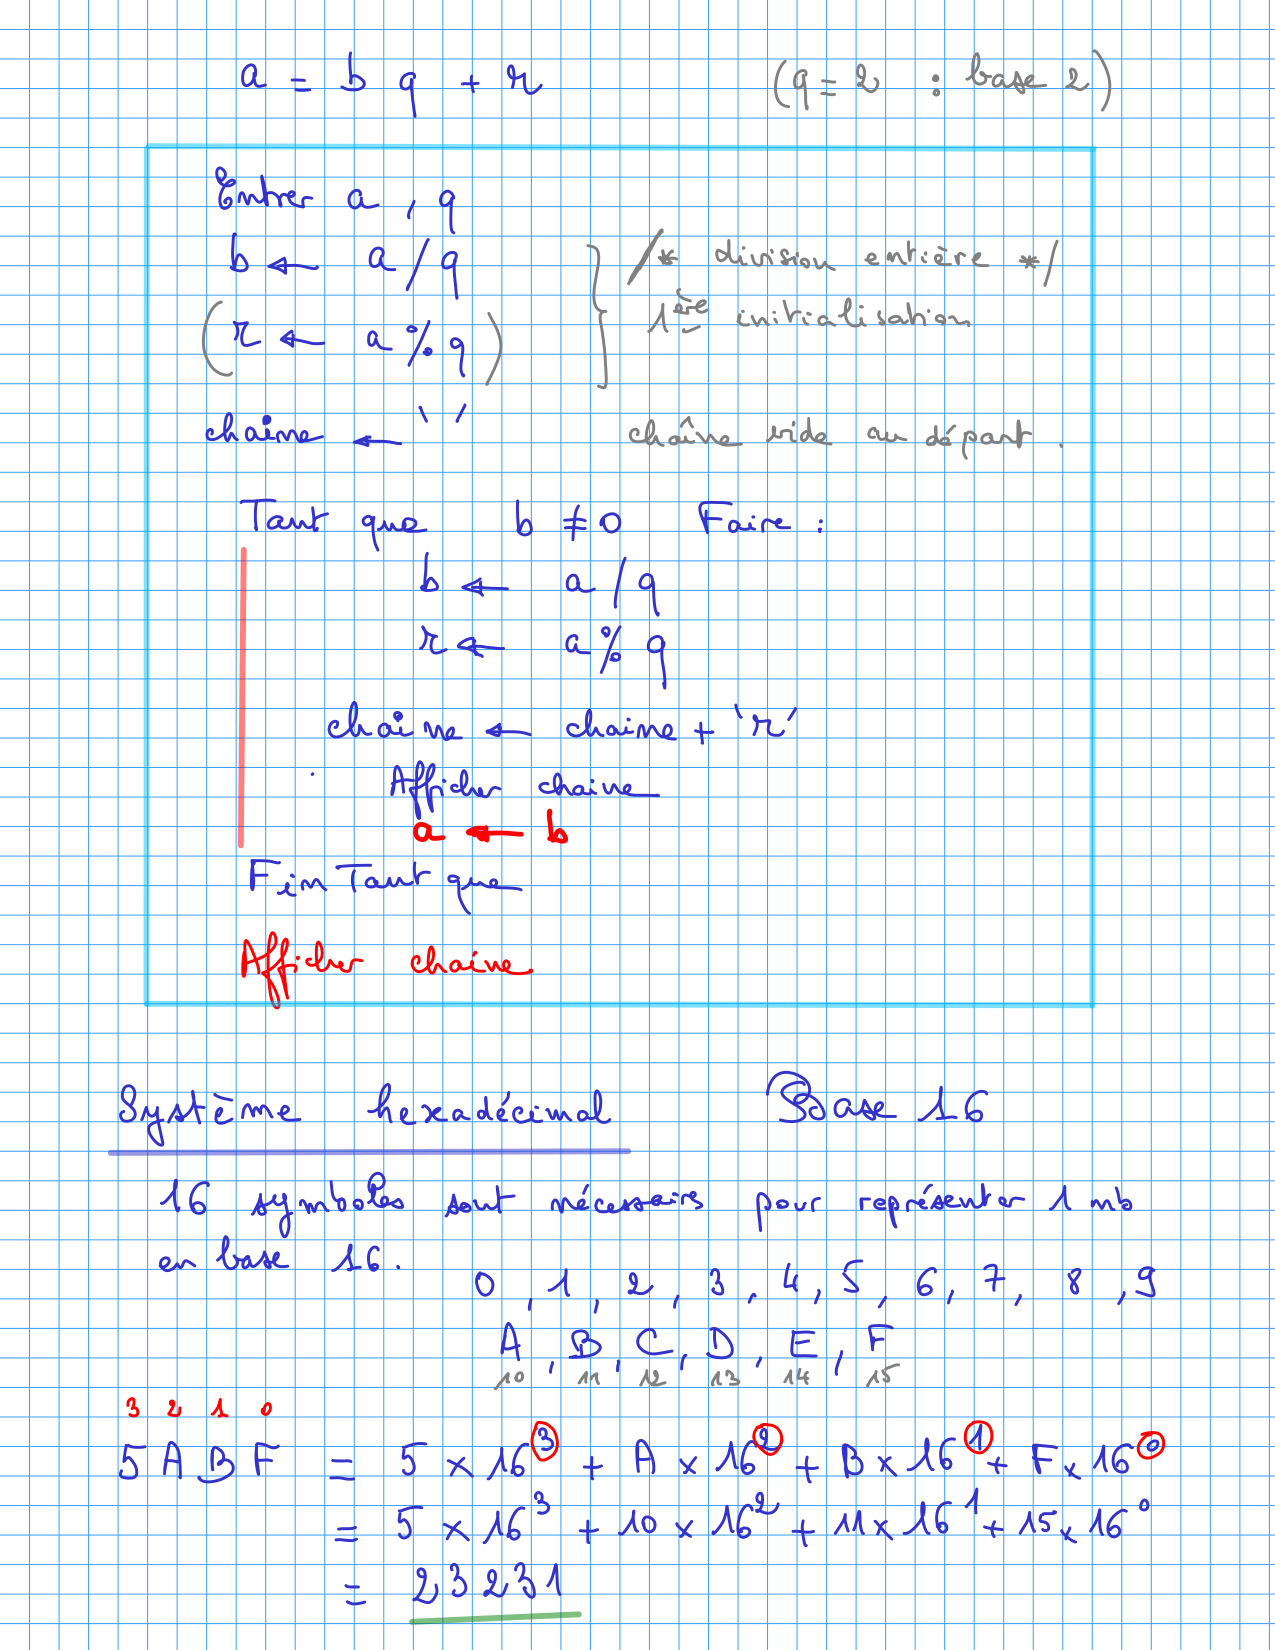 a = b q + r (q = 2 : base 2)
Entrer a , q
b ← a / q /* division entière */
(r ← a % q) 1ère initialisation
chaîne ← ' ' chaîne vide au départ.
Tant que b ≠ 0 Faire :
b ← a / q
r ← a % q
chaîne ← chaine + 'r'
Afficher chaine
a ← b
Fin Tant que
Afficher chaine.
Système hexadécimal Base 16
16 symboles sont nécessaires pour représenter 1 nb
en base 16.
0 , 1 , 2 , 3 , 4 , 5 , 6 , 7 , 8 , 9
A , B , C , D , E , F
10 11 12 13 14 15
3 2 1 0
5 A B F = 5 × 16³ + A × 16² + B × 16¹ + F × 16⁰
= 5 × 16³ + 10 × 16² + 11 × 16¹ + 15 × 16⁰
= 23231